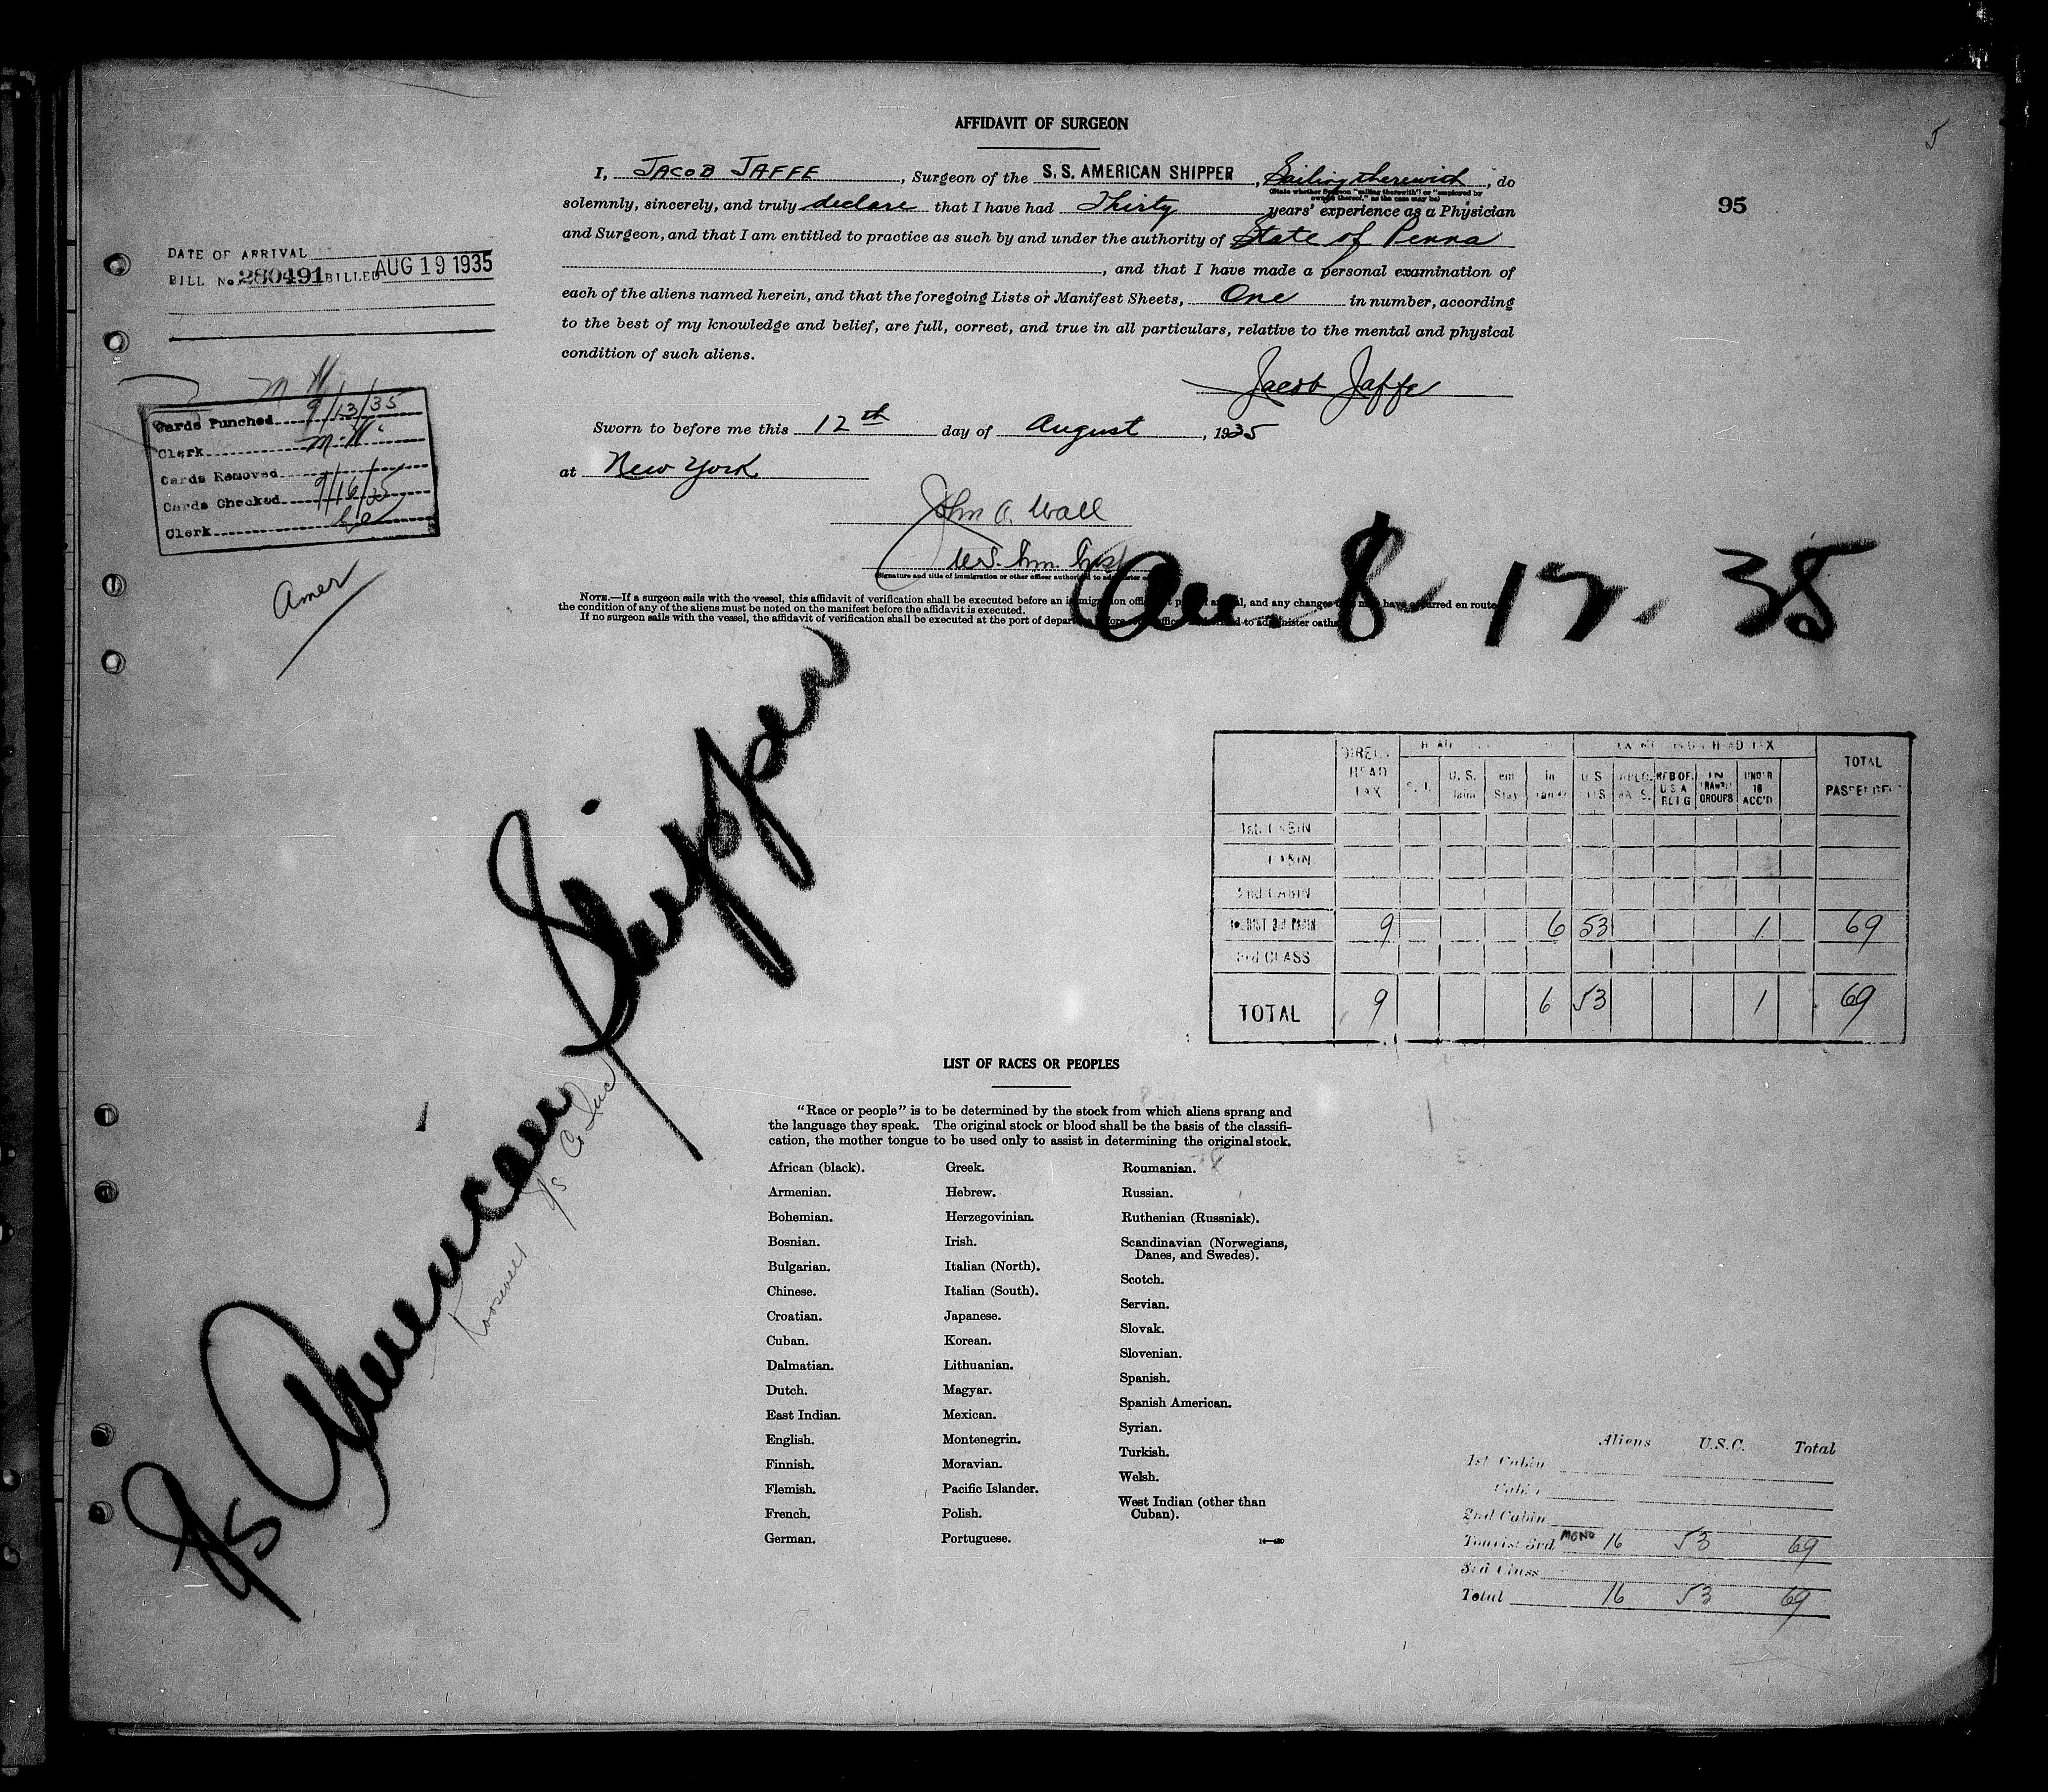 AFFIDAVIT OF SURGEON
I, JACOB JAFFE, Surgeon of the S. S. AMERICAN SHIPPER, Sailing therewith, do
(State whether Surgeon "sailing therewith" or "employed by
owners thereof," as the case may be)
solemnly, sincerely, and truly declare that I have had Thirty years' experience as a Physician
95
and Surgeon, and that I am entitled to practice as such by and under the authority of State of Penna
, and that I have made a personal examination of
each of the aliens named herein, and that the foregoing Lists or Manifest Sheets, One in number, according
to the best of my knowledge and belief, are full, correct, and true in all particulars, relative to the mental and physical
condition of such aliens.
Jacob Jaffe
Sworn to before me this 12th day of August, 1935
at New York
John A. Wall
U.S. Im. Insp
(Signature and title of immigration or other officer authorized to administer
NOTE.—If a surgeon sails with the vessel, this affidavit of verification shall be executed before an immigration officer at port of arrival, and any changes that may have occurred en route
the condition of any of the aliens must be noted on the manifest before the affidavit is executed.
If no surgeon sails with the vessel, the affidavit of verification shall be executed at the port of departure before officer authorized to administer oaths
DATE OF ARRIVAL
BILL No. 280491 BILLED AUG 19 1935
Cards Punched 9/13/35
Clerk
Cards Removed
Cards Checked 9/16/35
Clerk
Amer
American Shipper
DIRECT HEAD TAX
U. S.
IN TRANSIT GROUPS
UNDER 16 ACC'D
TOTAL PASSENGERS
1st. CABIN
CABIN
2nd CABIN
TOURIST 3rd CABIN 9 6 53 1 69
3rd CLASS
TOTAL 9 6 53 1 69
LIST OF RACES OR PEOPLES
"Race or people" is to be determined by the stock from which aliens sprang and
the language they speak. The original stock or blood shall be the basis of the classifi-
cation, the mother tongue to be used only to assist in determining the original stock.
African (black).
Armenian.
Bohemian.
Bosnian.
Bulgarian.
Chinese.
Croatian.
Cuban.
Dalmatian.
Dutch.
East Indian.
English.
Finnish.
Flemish.
French.
German.
Greek.
Hebrew.
Herzegovinian.
Irish.
Italian (North).
Italian (South).
Japanese.
Korean.
Lithuanian.
Magyar.
Mexican.
Montenegrin.
Moravian.
Pacific Islander.
Polish.
Portuguese.
Roumanian.
Russian.
Ruthenian (Russniak).
Scandinavian (Norwegians,
Danes, and Swedes).
Scotch.
Servian.
Slovak.
Slovenian.
Spanish.
Spanish American.
Syrian.
Turkish.
Welsh.
West Indian (other than
Cuban).
Aliens U.S.C. Total
1st Cabin
Cabin
2nd Cabin
Tourist 3rd. 16 53 69
3rd Class
Total 16 53 69